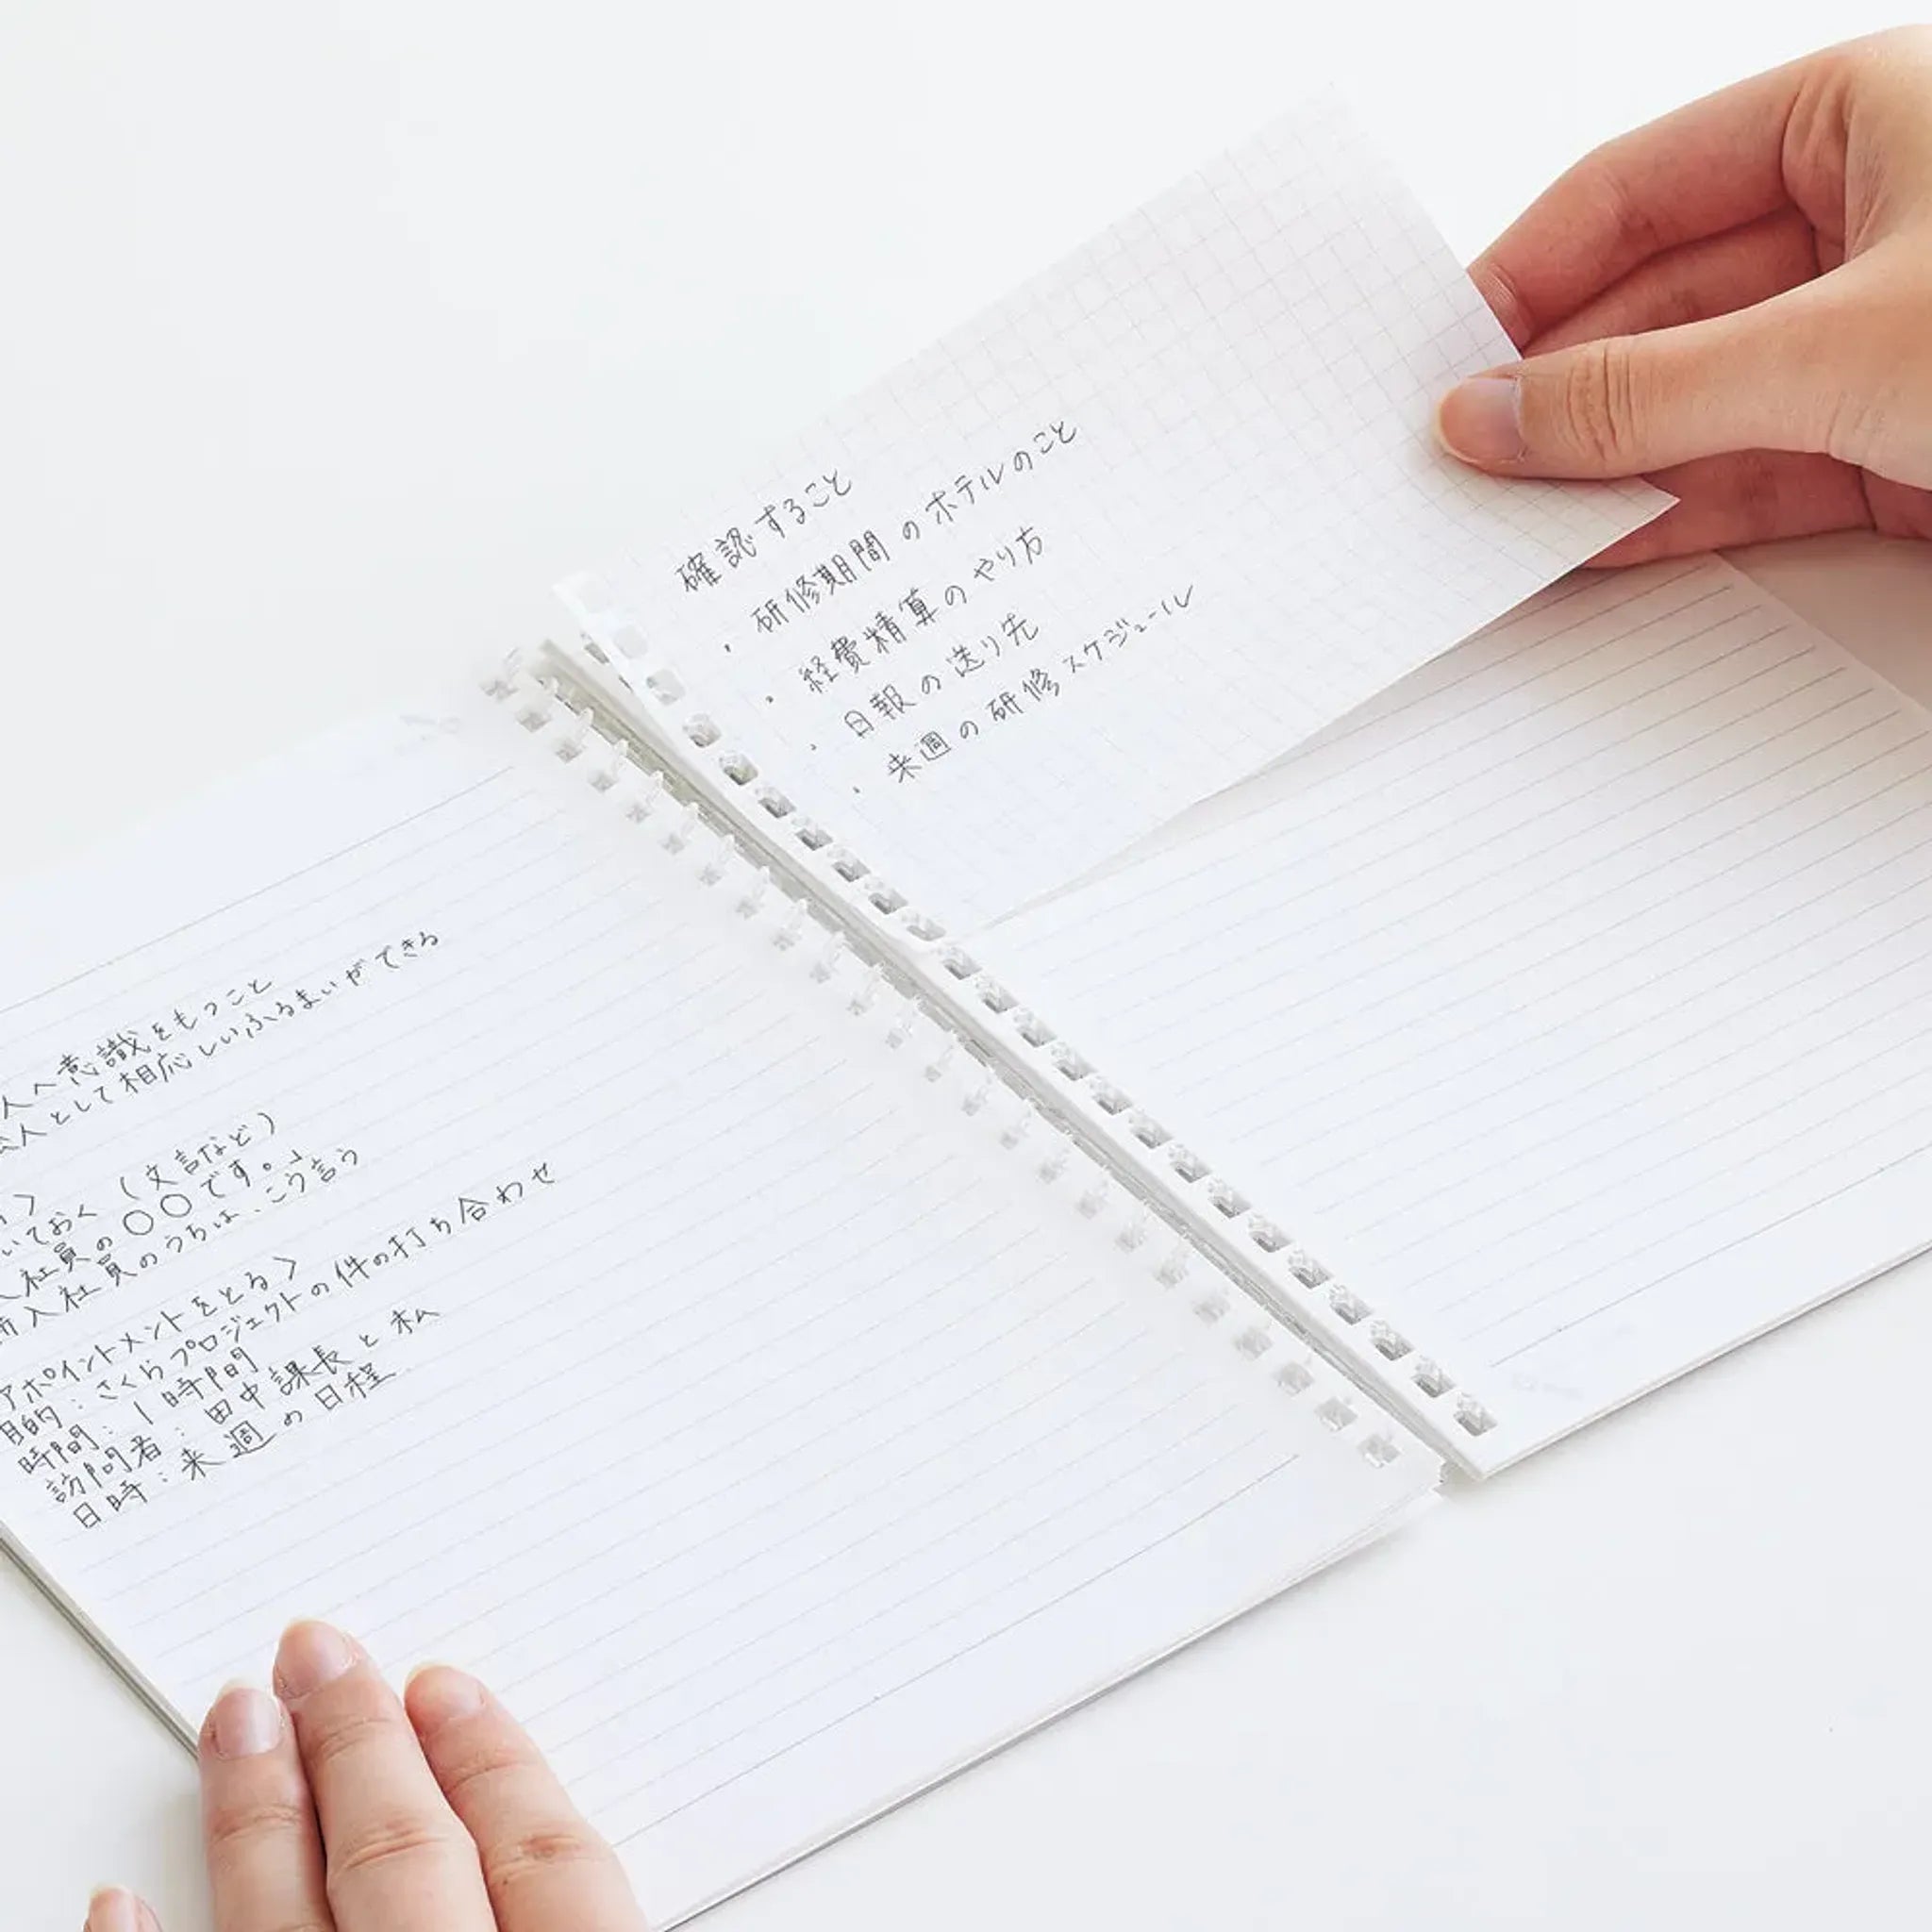 人へ意識をもつこと
人として相応しいふるまいができる
いておく(文言など)
社員の〇〇です。」
新入社員のうちは、こう言う
アポイントメントをとる〉
目的:さくらプロジェクトの件の打ち合わせ
時間:1時間
訪問者:田中課長と私
日時:来週の日程
確認すること
・研修期間のホテルのこと
・経費精算のやり方
・日報の送り先
・来週の研修スケジュール